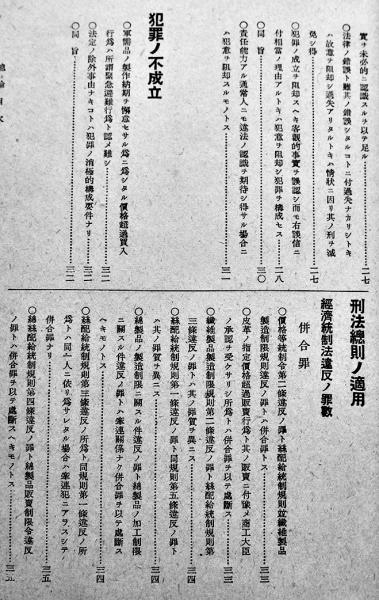 實ヲ未必的ニ認識スルヲ以テ足ル……二七
○法律ノ錯誤ト雖其ノ錯誤シタルコトニ付過失ナカリシトキ
ハ故意ヲ阻却シ過失アリタルトキハ情狀ニ因リ其ノ刑ヲ減
免シ得……二七
○犯罪ノ成立ヲ阻却スヘキ客觀的事實ヲ誤認シ而モ右誤信ニ
付相當ノ理由アルトキハ犯意ヲ阻却シ犯罪ヲ構成セス……二八
○同旨……三〇
○責任能力アル通常人ニモ違法ノ認識ヲ期待シ得サル場合ニ
ハ犯意ヲ阻却スルモノトス……三一
犯罪ノ不成立
○軍需品ノ製作納期ヲ懈怠セサル爲ニ爲シタル價格超過買入
行爲ハ所謂緊急避難行爲ト認メ難シ……三一
○法定ノ除外事由ナキコトハ犯罪ノ消極的構成要件ナリ……三二
○同旨……三二
總論目次
刑法總則ノ適用
經濟統制法違反ノ罪數
併合罪
○價格等統制令第二條違反ノ罪ト絲配給統制規則竝纖維製品
製造制限規則違反ノ罪トハ併合罪トス……三三
○皮革ノ指定價格超過販賣行爲ト其ノ販賣ニ付豫メ商工大臣
ノ承認ヲ受ケサリシ所爲トハ併合罪ヲ以テ處斷ス……三三
○纖維製品製造制限規則第二條違反ノ罪ト絲配給統制規則第
三條違反ノ罪トハ其ノ罪質ヲ異ニス……三四
○絲配給統制規則第一條違反ノ罪ト同規則第五條違反ノ罪ト
ハ其ノ罪質ヲ異ニス……三四
○綿製品ノ製造制限ニ關スル件違反ノ罪ト綿製品ノ加工制限
ニ關スル件違反ノ罪トハ牽連關係ナク併合罪ヲ以テ處斷ス
ヘキモノトス……三四
○絲配給統制規則第三條違反ノ所爲ト同規則第一條違反ノ所
爲トハ同一人ニ依リ爲サレタル場合ハ牽連犯ニアラスシテ
併合罪ナリ……三五
○綿絲配給統制規則第四條違反ノ罪ト綿製品販賣制限令違反
ノ罪トハ併合罪ヲ以テ處斷スヘキモノトス……三五